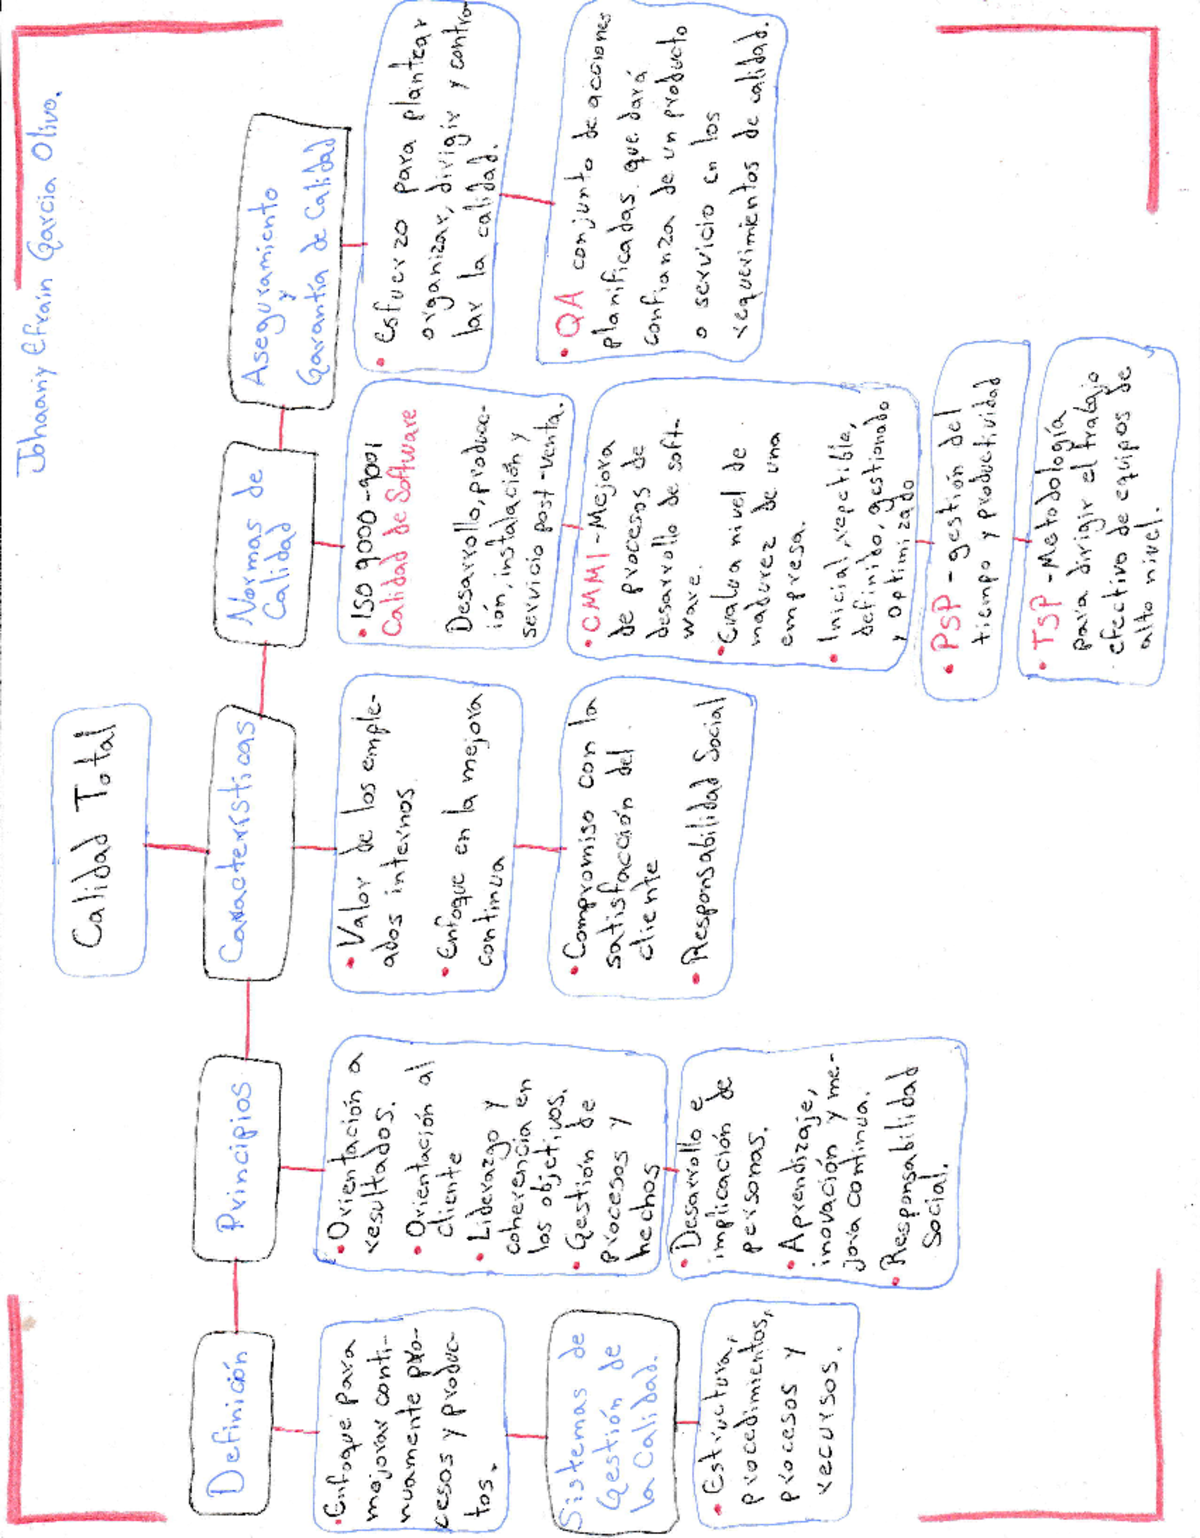 Johaany Efraín García Olivo.
Calidad Total
Definición
• Enfoque para
mejorar conti-
nuamente pro-
cesos y produc-
tos.
Sistemas de
Gestión de
la Calidad.
• Estructura,
procedimientos,
procesos y
recursos.
Principios
• Orientación a
resultados.
• Orientación al
cliente
• Liderazgo y
coherencia en
los objetivos.
• Gestión de
procesos y
hechos
• Desarrollo e
implicación de
personas.
• Aprendizaje,
inovación y me-
jora continua.
• Responsabilidad
Social.
Características
• Valor de los emple-
ados internos
• Enfoque en la mejora
continua
• Compromiso con la
satisfacción del
cliente
• Responsabilidad Social
Normas de
Calidad
• ISO 9000-9001
Calidad de Software
Desarrollo, producc-
ión, instalación y
servicio post-venta.
• CMMI-Mejora
de procesos de
desarrollo de soft-
ware.
• Evalua nivel de
madurez de una
empresa.
• Inicial, repetible,
definido, gestionado
y optimizado
• PSP-gestión del
tiempo y productividad
• TSP-Metodología
para dirigir el trabajo
efectivo de equipos de
alto nivel.
Aseguramiento
y
Garantía de Calidad
• esfuerzo para plantear
organizar, dirigir y contro
lar la calidad.
• QA conjunto de acciones
planificadas que dará
confianza de un producto
o servicio en los
requerimientos de calidad.